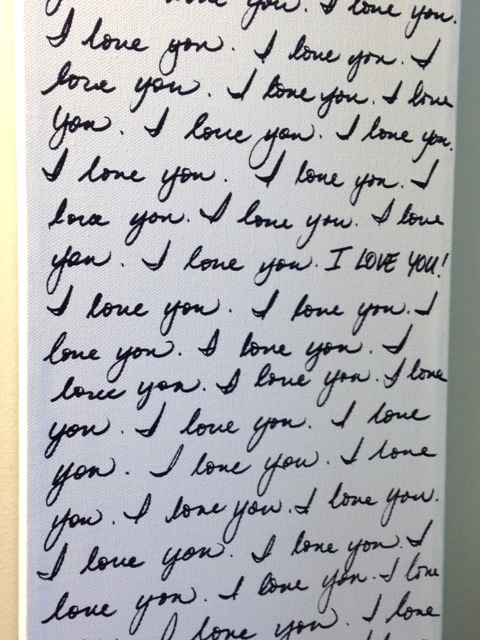 love you. I love you.
I love you. I love you. I
love you. I love you. I love
you. I love you. I love you.
I love you. I love you. I
love you. I love you. I love
you. I love you. I LOVE YOU!
I love you. I love you. I
love you. I love you. I
love you. I love you. I love
you. I love you. I love
you. I love you. I love
you. I love you. I love you.
I love you. I love you. I
love you. I love you. I love
I love you. I love